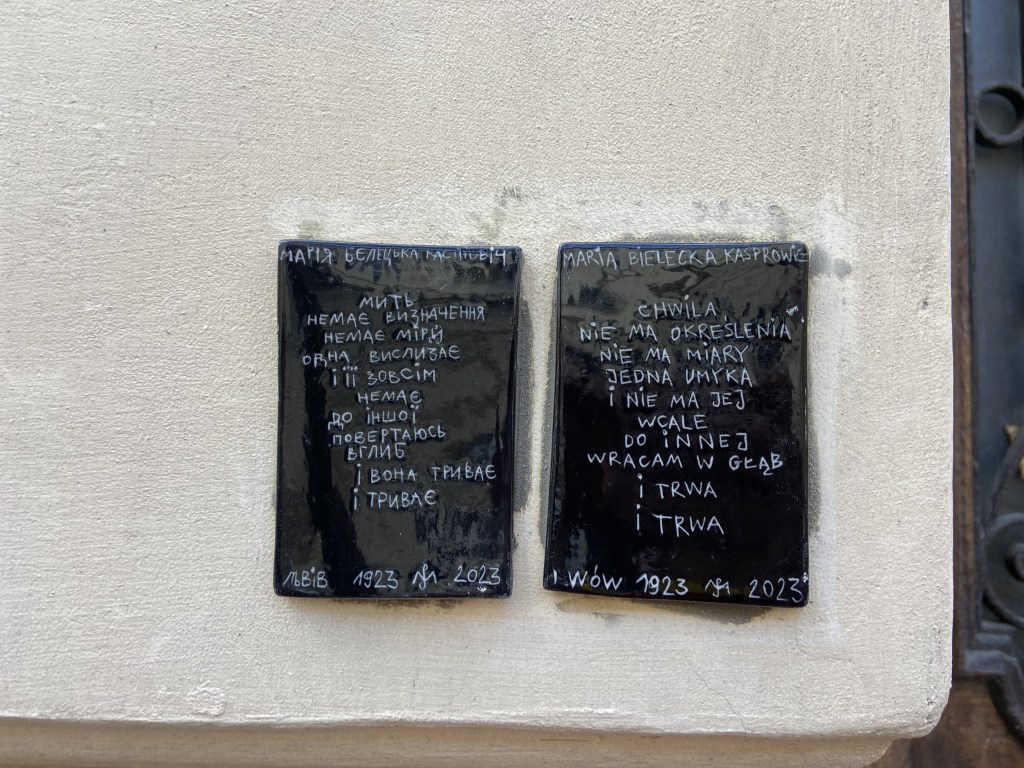 МАРІЯ БЕЛЕЦЬКА
МИТЬ
НЕМАЄ ВИЗНАЧЕННЯ
НЕМАЄ МІРИ
ОДНА ВИСЛИЗАЄ
І ЇЇ ЗОВСІМ
НЕМАЄ
ДО ІНШОЇ
ПОВЕРТАЮСЬ
ВГЛИБ
І ВОНА ТРИВАЄ
І ТРИВАЄ
ЛЬВІВ 1923 2023
MARIA BIELECKA KASPROWIC
CHWILA
NIE MA OKREŚLENIA
NIE MA MIARY
JEDNA UMYKA
I NIE MA JEJ
WCALE
DO INNEJ
WRACAM W GŁĄB
I TRWA
I TRWA
LWÓW 1923 2023